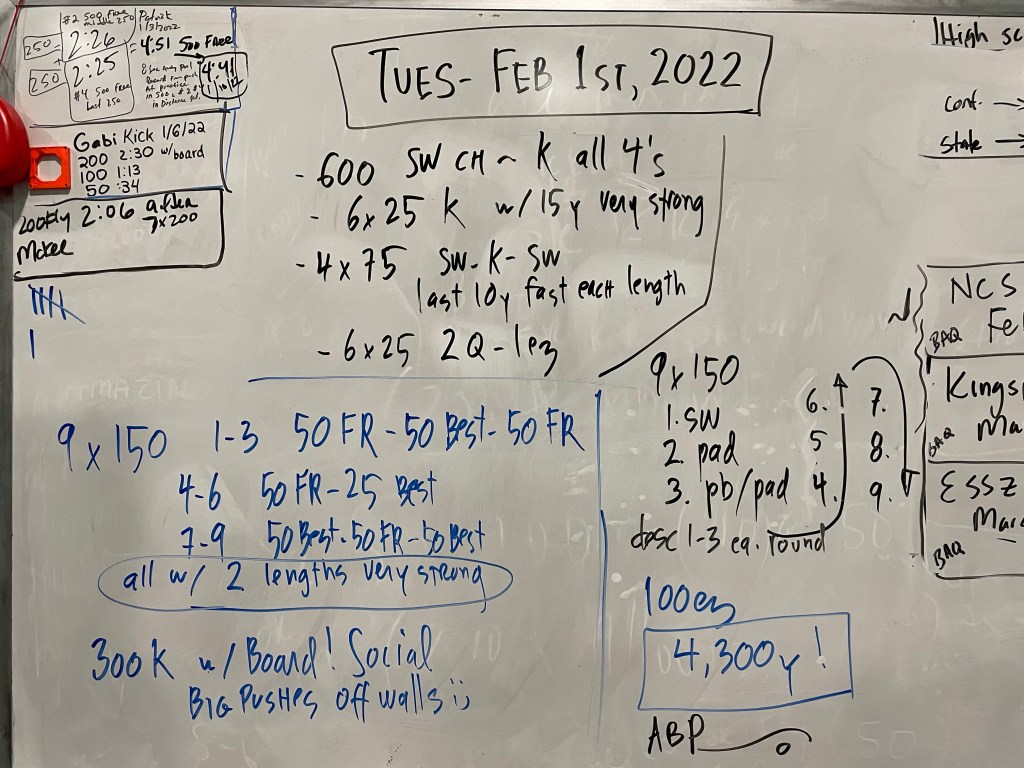 #2 500 Free
middle 250
250
2:26
250
2:25
#4 500 Free
Last 250
1/3/2022
= 4:51 500 Free
Gabi Kick 1/6/22
200 2:30 w/board
100 1:13
50 :34
200 Fly 2:06 after
7x200
TUES- FEB 1ST, 2022
- 600 SW CH ~ K all 4's
- 6x25 K w/ 15y very strong
- 4x75 SW-K-SW
last 10y fast each length
- 6x25 2Q-1ez
9x150 1-3 50 FR-50 Best-50 FR
4-6 50 FR-25 Best
7-9 50 Best-50 FR-50 Best
all w/ 2 lengths very strong
300 K w/ Board! Social
BIG PUSHES off walls :)
9x150
1. SW 6. 7.
2. pad 5 8.
3. pb/pad 4. 9.
desc 1-3 ea. round
100 ez
4,300y!
ABP
High sc
conf. →
state →
NCS
BAQ Fe
Kings
BAQ Ma
ESSZ
Mar
BAQ